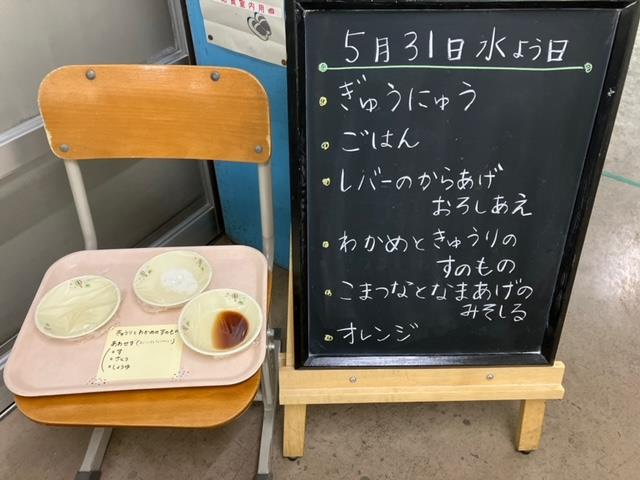 室内用
5月31日 水よう日
ぎゅうにゅう
ごはん
レバーのからあげ
おろしあえ
わかめときゅうりの
すのもの
こまつなとなまあげの
みそしる
オレンジ
きゅうりとわかめのすのもの
あわせず
・す
・さとう
・しょうゆ